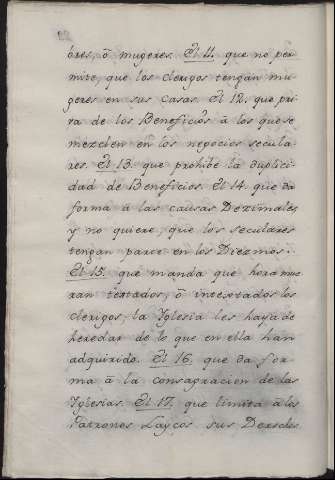 ores, ô mugeres. El 11. que no per
mite, que los clerigos tengan mu
geres en sus casas. El 12. que pri
va de los Beneficios â los que se
mezclen en los negocios secula
res. El 13. que prohibe la duplici
dad de Beneficios. El 14. que da
forma â las causas Dezimales,
y no quiere, que los seculares
tengan parte en los Diezmos.
El 15. que manda que hora mue
ran testados, ô intestados los
clerigos, la Yglesia les haya de
heredar de lo que en ella han
adquirido. El 16. que da for
ma â la consagracion de las
Yglesias. El 17. que limita â los
Patrones Laycos sus Derechos.